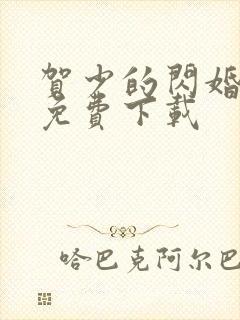 賀少的閃婚
免費下載
哈巴克阿尔巴